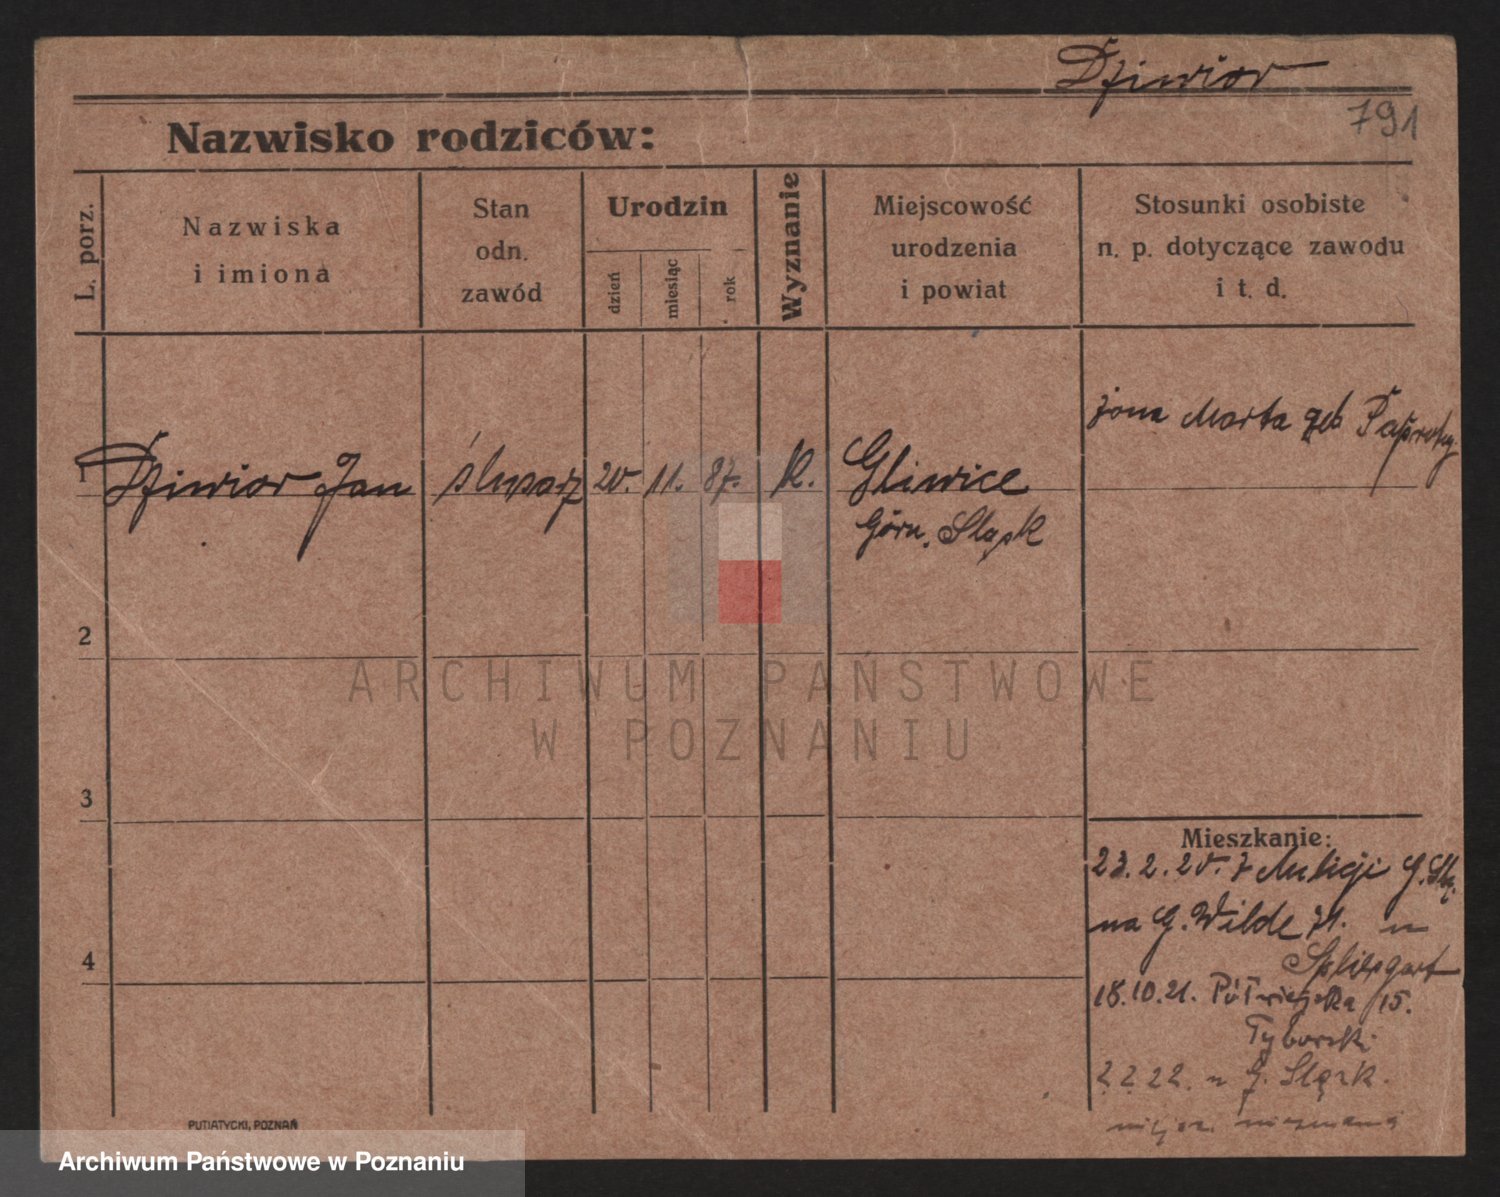 Dziwior
791
Nazwisko rodziców:
L. porz.
Nazwiska
i imiona
Stan
odn.
zawód
Urodzin
dzień
miesiąc
rok
Wyznanie
Miejscowość
urodzenia
i powiat
Stosunki osobiste
n. p. dotyczące zawodu
i t. d.
żona Marta geb
1 Dziwior Jan ślusarz 20. 11. 87. K. Gliwice
Górn. Śląsk
2
3
4
Mieszkanie:
23.2.20. z G.
na G. Wilde 71. u
18.10.21. Półwiejska 15.
Tyborski
2.2.22. n G. Śląsk.
miejsc. nieznana
PUTIATYCKI, POZNAŃ
ARCHIWUM PAŃSTWOWE
W POZNANIU
Archiwum Państwowe w Poznaniu